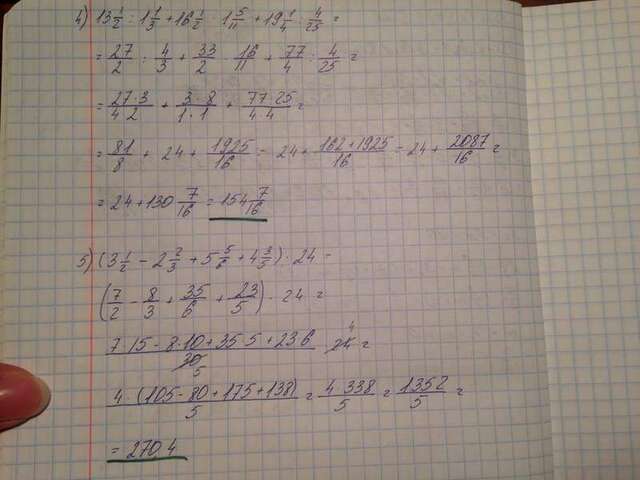 4) 13 1/2 : 1 1/3 + 16 1/2 : 1 5/11 + 19 1/4 : 4/25 =
= 27/2 : 4/3 + 33/2 : 16/11 + 77/4 : 4/25 =
= 27·3/4·2 + 3·8/1·1 + 77·25/4·4 =
= 81/8 + 24 + 1925/16 = 24 + 162+1925/16 = 24 + 2087/16 =
= 24 + 130 7/16 = 154 7/16
5) (3 1/2 - 2 2/3 + 5 5/6 + 4 3/5) · 24 =
(7/2 - 8/3 + 35/6 + 23/5) · 24 =
7·15 - 8·10 + 35·5 + 23·6/30 5 · 24 4 =
4 (105 - 80 + 175 + 138)/5 = 4·338/5 = 1352/5 =
= 270 4